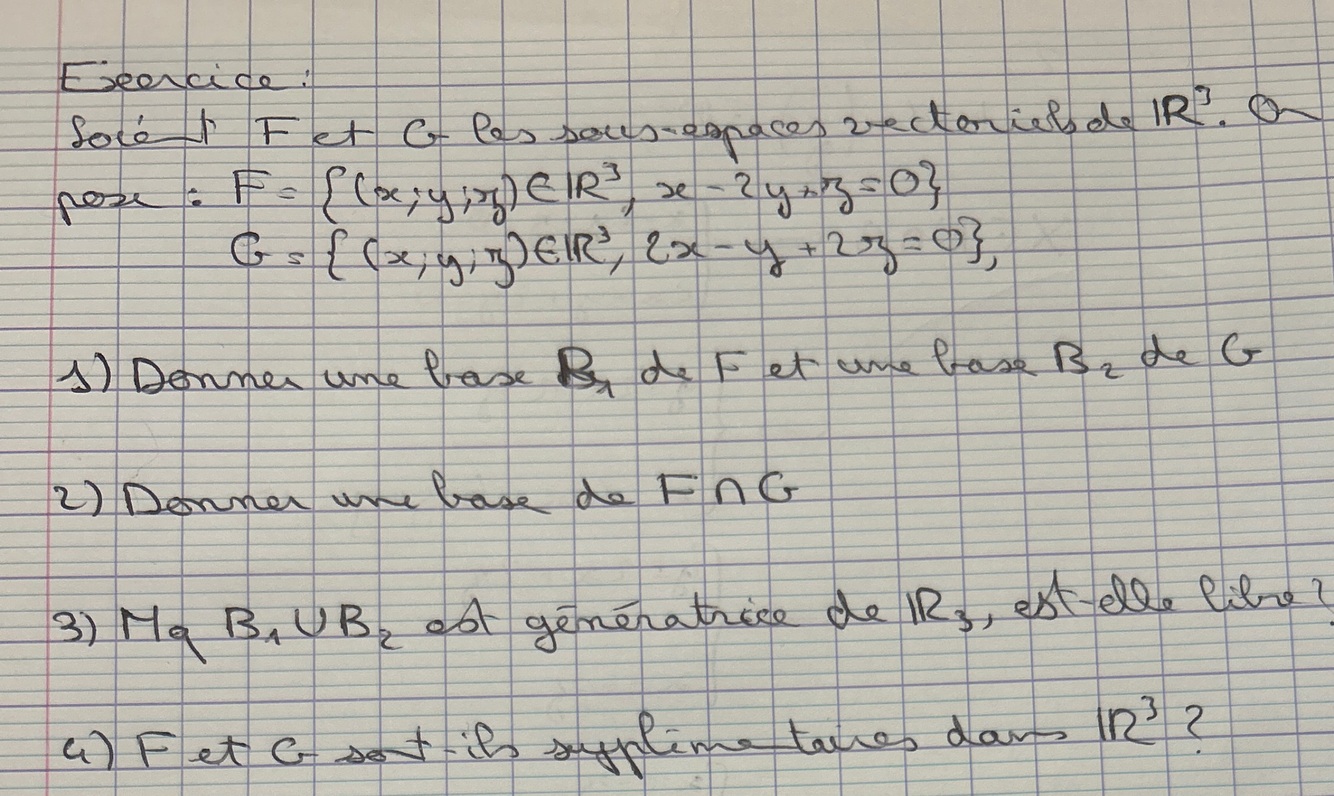 Exercice :
Soient F et G les sous-espaces vectoriels de ℝ³. On
pose : F = {(x; y; z) ∈ ℝ³, x - 2y + z = 0}
G = {(x; y; z) ∈ ℝ³, 2x - y + 2z = 0},
1) Donner une base B₁ de F et une base B₂ de G
2) Donner une base de F ∩ G
3) Mq B₁ ∪ B₂ est génératrice de ℝ₃, est-elle libre ?
4) F et G sont-ils supplémentaires dans ℝ³ ?